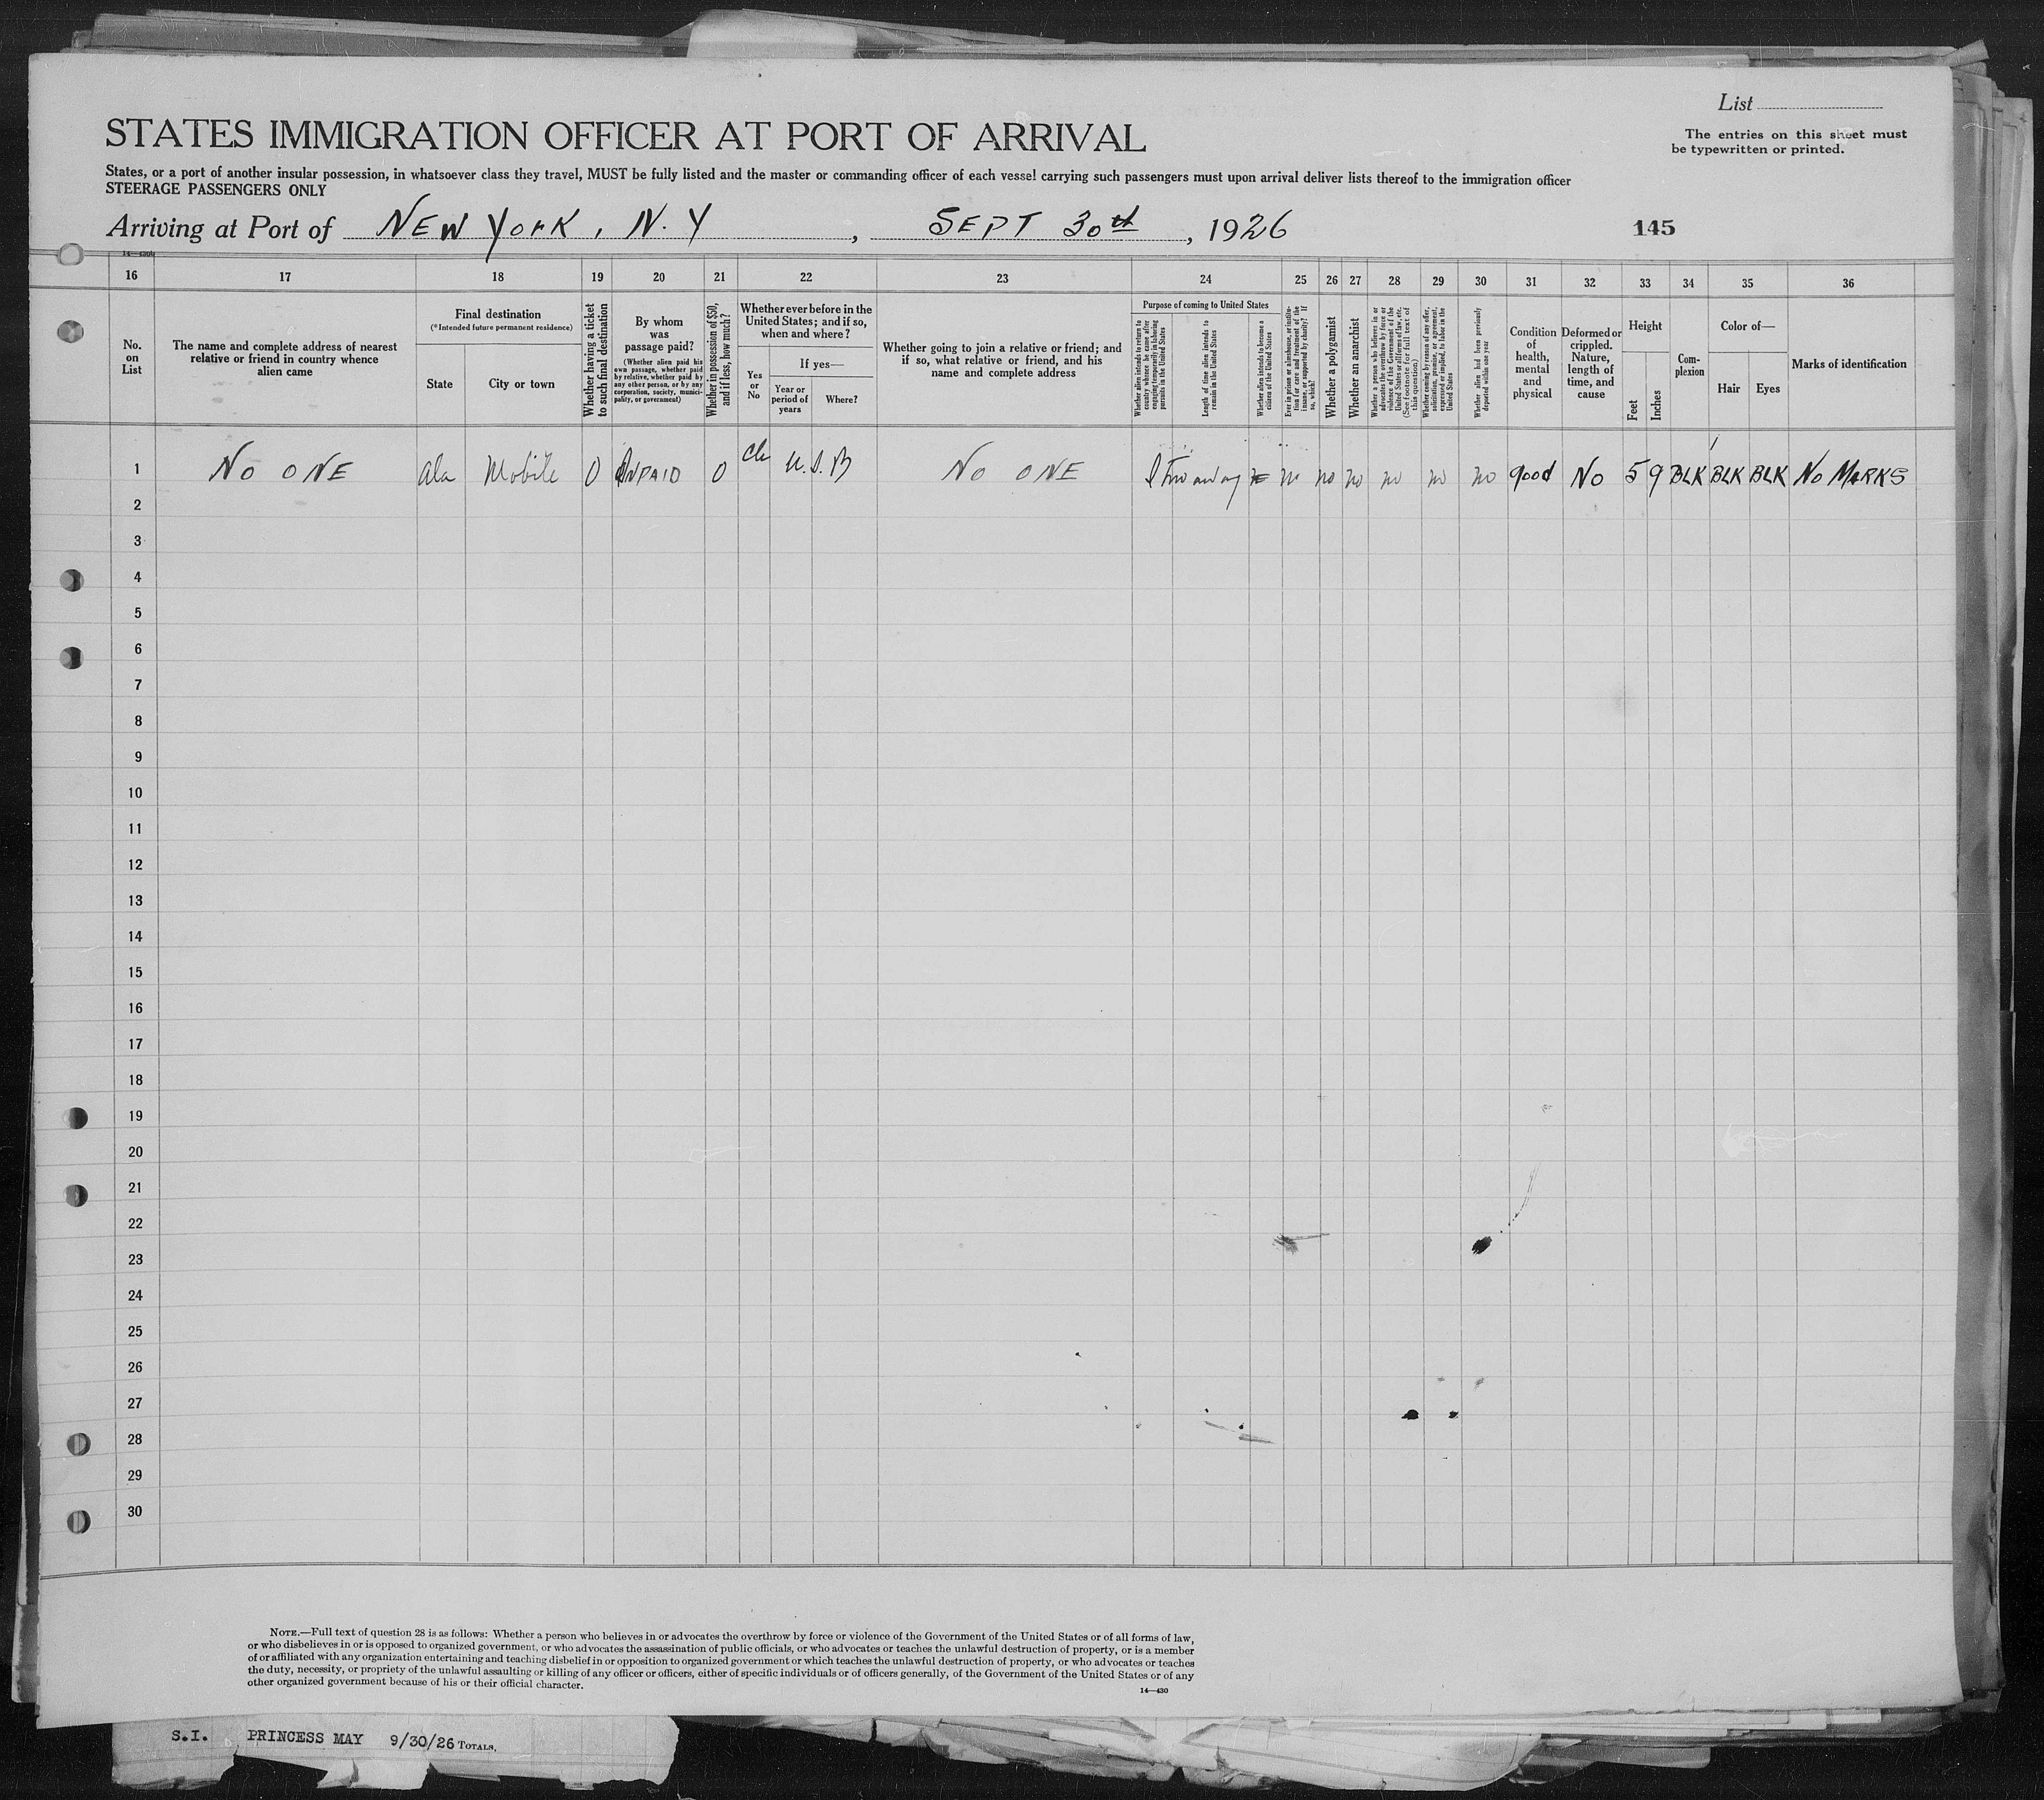 List
The entries on this sheet must
be typewritten or printed.
STATES IMMIGRATION OFFICER AT PORT OF ARRIVAL
States, or a port of another insular possession, in whatsoever class they travel, MUST be fully listed and the master or commanding officer of each vessel carrying such passengers must upon arrival deliver lists thereof to the immigration officer
STEERAGE PASSENGERS ONLY
Arriving at Port of NEW YORK, N.Y , SEPT 30th , 1926
145
14—430b
16 17 18 19 20 21 22 23 24 25 26 27 28 29 30 31 32 33 34 35 36
No.
on
List
The name and complete address of nearest
relative or friend in country whence
alien came
Final destination
(*Intended future permanent residence)
State
City or town
Whether having a ticket
to such final destination
By whom
was
passage paid?
(Whether alien paid his
own passage, whether paid
by relative, whether paid by
any other person, or by any
corporation, society, munici-
pality, or government)
Whether in possession of $50,
and if less, how much?
Whether ever before in the
United States; and if so,
when and where?
Yes
or
No
If yes—
Year or
period of
years
Where?
Whether going to join a relative or friend; and
if so, what relative or friend, and his
name and complete address
Purpose of coming to United States
Whether alien intends to return to
country whence he came after
engaging temporarily in laboring
pursuits in the United States
Length of time alien intends to
remain in the United States
Whether alien intends to become a
citizen of the United States
Ever in prison or almshouse, or institu-
tion for care and treatment of the
insane, or supported by charity? If
so, which?
Whether a polygamist
Whether an anarchist
Whether a person who believes in or
advocates the overthrow by force or
violence of the Government of the
United States or all forms of law, etc.
(See footnote for full text of
this question)
Whether coming by reason of any offer,
solicitation, promise, or agreement,
expressed or implied, to labor in the
United States
Whether alien had been previously
deported within one year
Condition
of
health,
mental
and
physical
Deformed or
crippled.
Nature,
length of
time, and
cause
Height
Feet
Inches
Com-
plexion
Color of—
Hair
Eyes
Marks of identification
1 NO ONE Ala Mobile 0 UNPAID 0 U.S.B NO ONE no no no no no no good No 5 9 BLK BLK BLK No MARKS
2
3
4
5
6
7
8
9
10
11
12
13
14
15
16
17
18
19
20
21
22
23
24
25
26
27
28
29
30
NOTE.—Full text of question 28 is as follows: Whether a person who believes in or advocates the overthrow by force or violence of the Government of the United States or of all forms of law,
or who disbelieves in or is opposed to organized government, or who advocates the assassination of public officials, or who advocates or teaches the unlawful destruction of property, or is a member
of or affiliated with any organization entertaining and teaching disbelief in or opposition to organized government or which teaches the unlawful destruction of property, or who advocates or teaches
the duty, necessity, or propriety of the unlawful assaulting or killing of any officer or officers, either of specific individuals or of officers generally, of the Government of the United States or of any
other organized government because of his or their official character.
14—430
S.I. PRINCESS MAY 9/30/26 TOTALS,